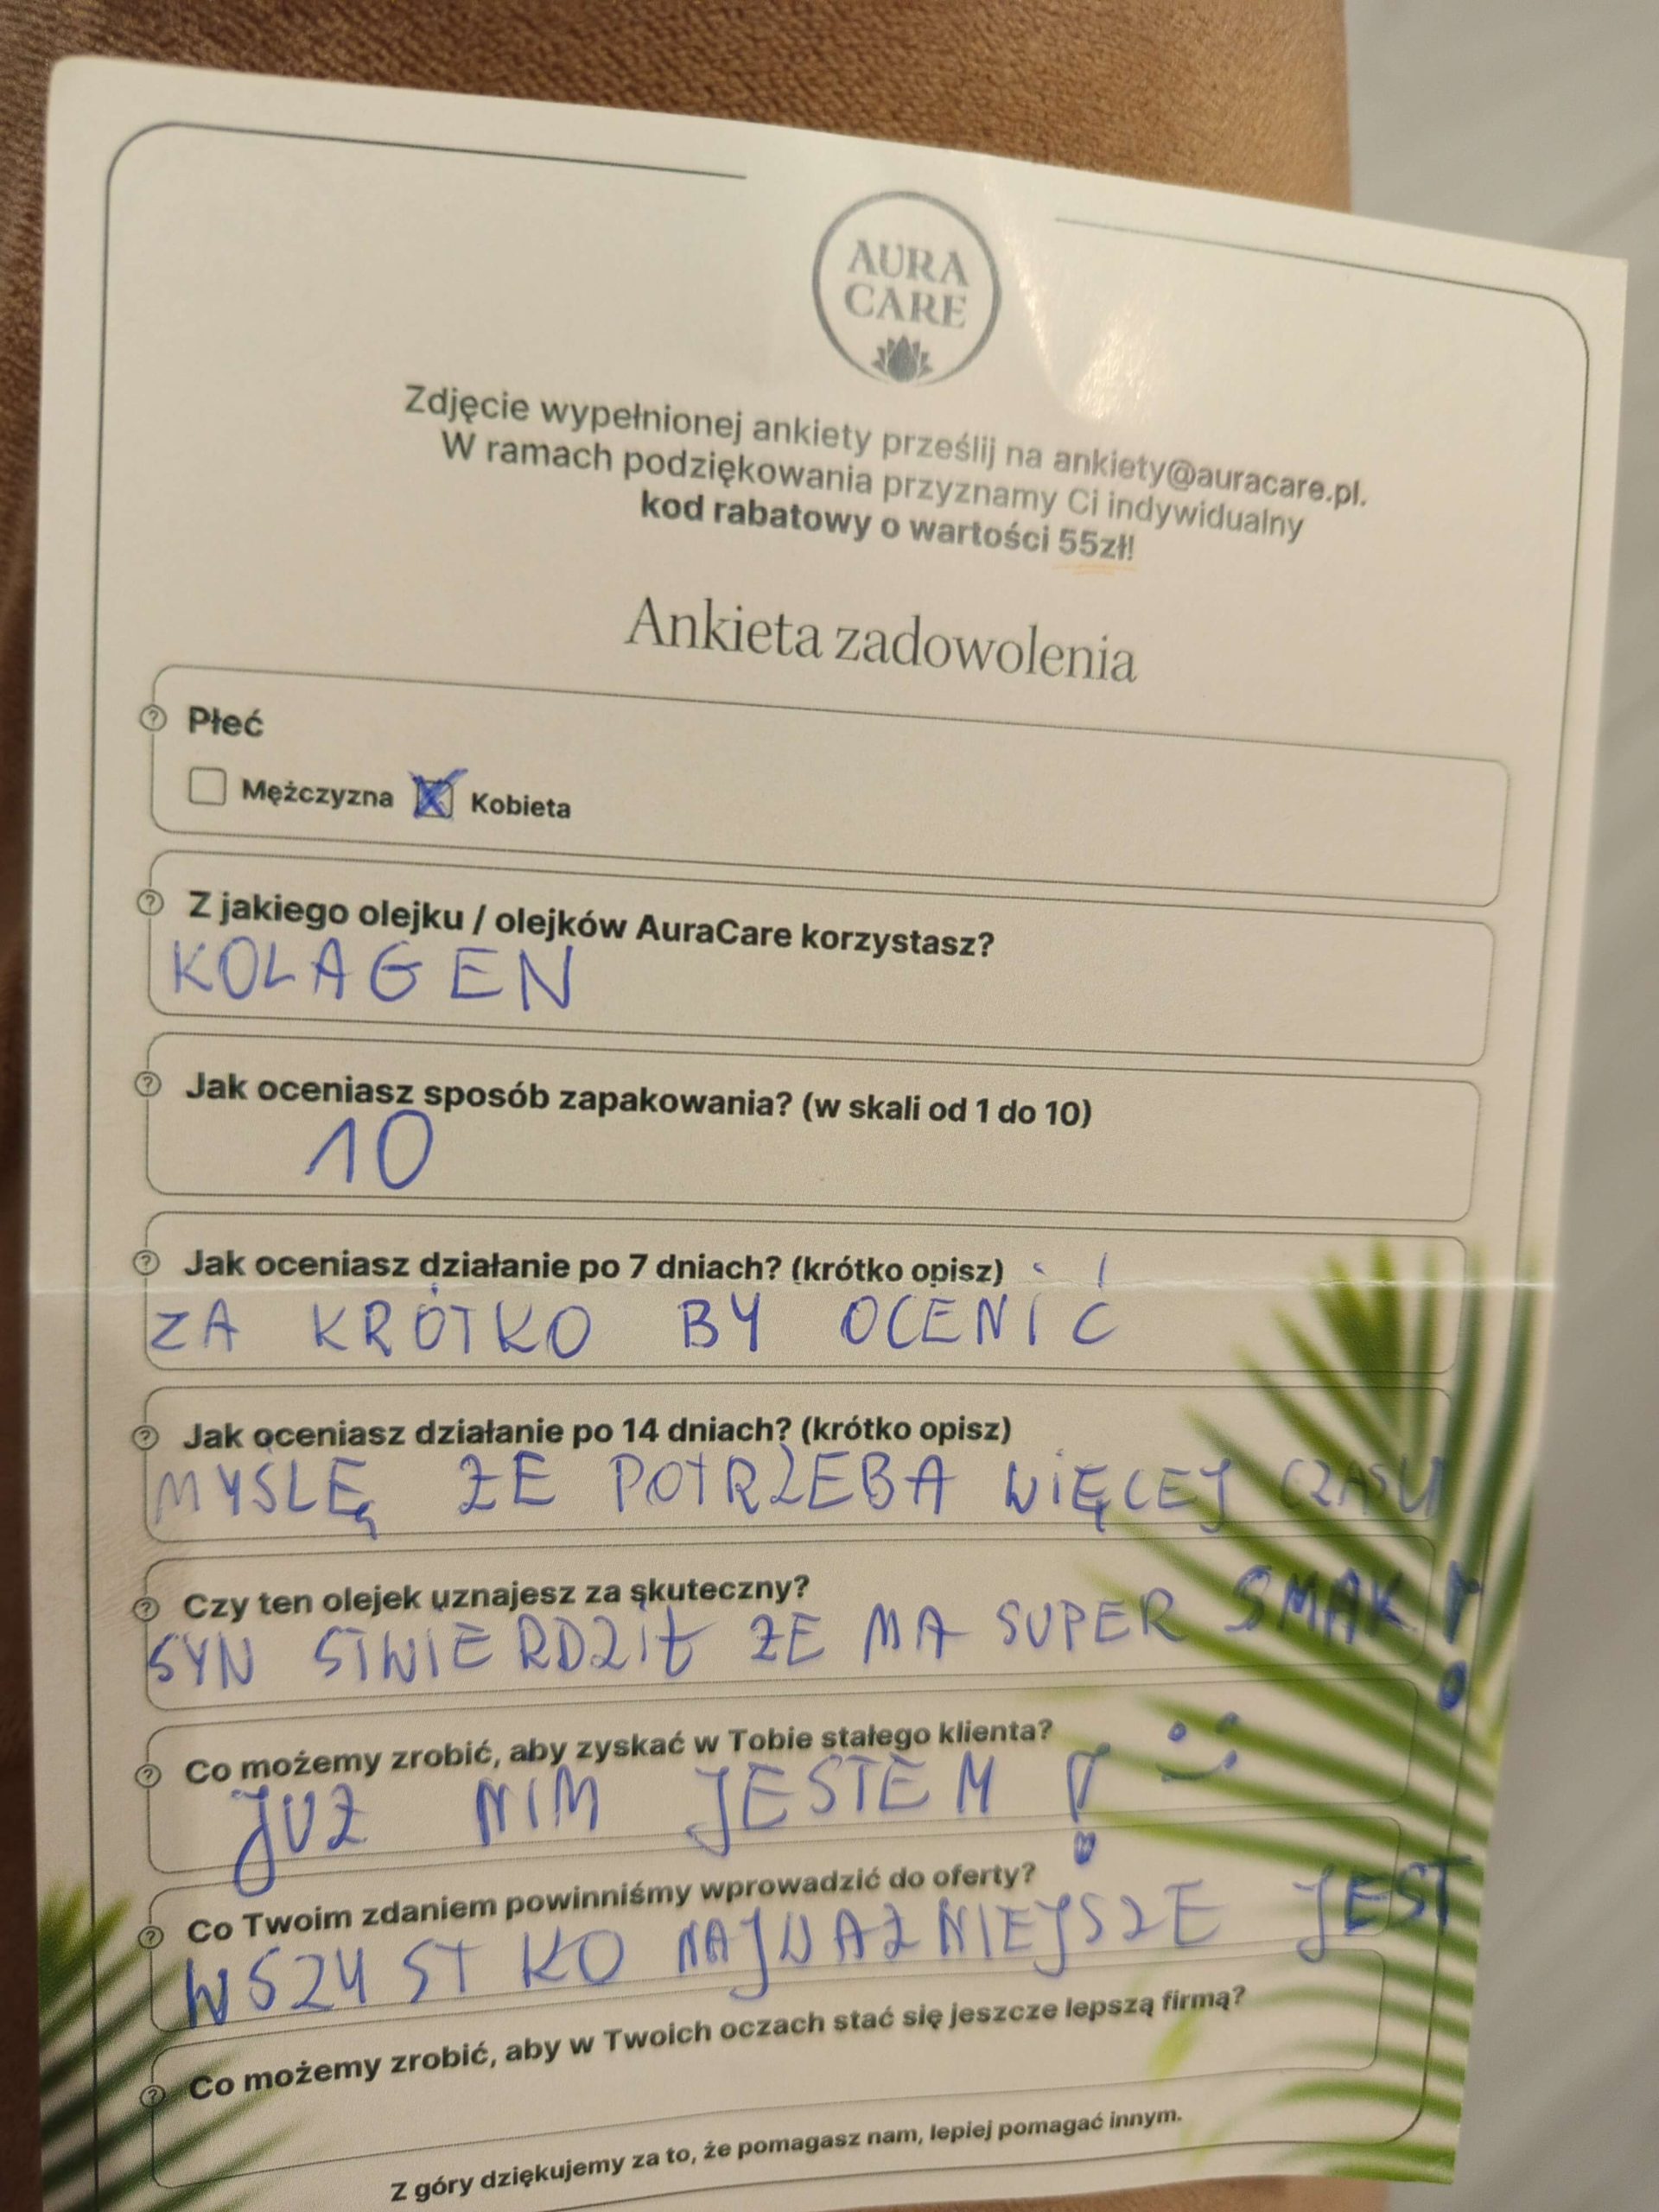 AURA
CARE
Zdjęcie wypełnionej ankiety prześlij na ankiety@auracare.pl.
W ramach podziękowania przyznamy Ci indywidualny
kod rabatowy o wartości 55zł!
Ankieta zadowolenia
Płeć
Mężczyzna Kobieta
Z jakiego olejku / olejków AuraCare korzystasz?
KOLAGEN
Jak oceniasz sposób zapakowania? (w skali od 1 do 10)
10
Jak oceniasz działanie po 7 dniach? (krótko opisz)
ZA KRÓTKO BY OCENIĆ
Jak oceniasz działanie po 14 dniach? (krótko opisz)
MYŚLĘ ŻE POTRZEBA WIĘCEJ CZASU
Czy ten olejek uznajesz za skuteczny?
SYN STWIERDZIŁ ŻE MA SUPER SMAK!
Co możemy zrobić, aby zyskać w Tobie stałego klienta?
JUŻ NIM JESTEM! :)
Co Twoim zdaniem powinniśmy wprowadzić do oferty?
WSZYSTKO NAJWAŻNIEJSZE JEST
Co możemy zrobić, aby w Twoich oczach stać się jeszcze lepszą firmą?
Z góry dziękujemy za to, że pomagasz nam, lepiej pomagać innym.